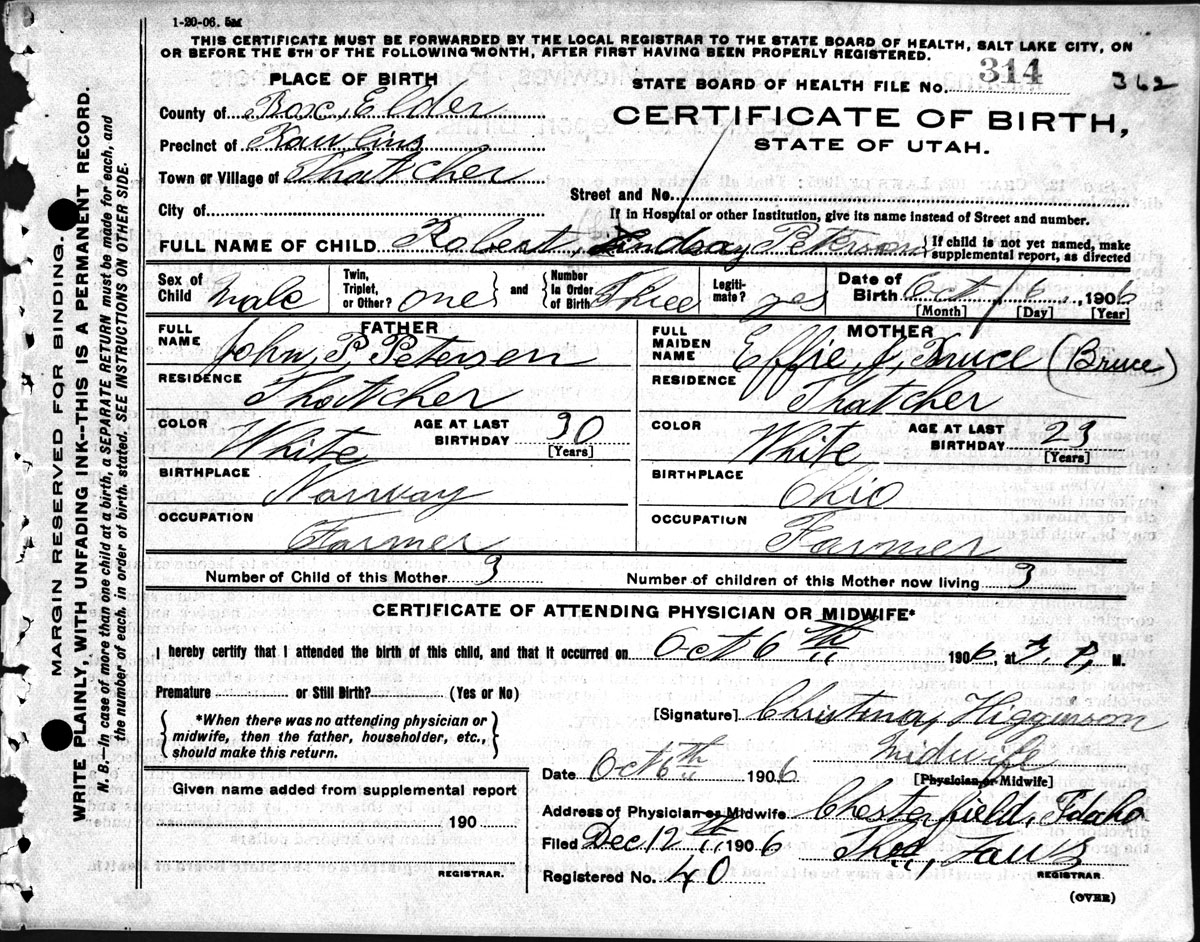 1-20-06. 5M
THIS CERTIFICATE MUST BE FORWARDED BY THE LOCAL REGISTRAR TO THE STATE BOARD OF HEALTH, SALT LAKE CITY, ON
OR BEFORE THE 5TH OF THE FOLLOWING MONTH, AFTER FIRST HAVING BEEN PROPERLY REGISTERED.
PLACE OF BIRTH
STATE BOARD OF HEALTH FILE No. 314 362
County of Box Elder
CERTIFICATE OF BIRTH,
Precinct of Rawlins
STATE OF UTAH.
Town or Village of Thatcher
Street and No.
City of
If in Hospital or other Institution, give its name instead of Street and number.
FULL NAME OF CHILD Robert Lindsay Peterson
If child is not yet named, make supplemental report, as directed
Sex of Child Male
Twin, Triplet, or Other? one and Number in Order of Birth Three
Legitimate? yes
Date of Birth Oct, 6, 1906
[Month] [Day] [Year]
FATHER
FULL NAME John, P. Petersen
MOTHER
FULL MAIDEN NAME Effie, J, Bruce (Bruce)
RESIDENCE Thatcher
RESIDENCE Thatcher
COLOR White
AGE AT LAST BIRTHDAY 30 [Years]
COLOR White
AGE AT LAST BIRTHDAY 23 [Years]
BIRTHPLACE Norway
BIRTHPLACE Ohio
OCCUPATION Farmer
OCCUPATION Farmer
Number of Child of this Mother 3
Number of children of this Mother now living 3
CERTIFICATE OF ATTENDING PHYSICIAN OR MIDWIFE*
I hereby certify that I attended the birth of this child, and that it occurred on Oct 6th 1906, at 3. P, M.
Premature? or Still Birth? (Yes or No)
*When there was no attending physician or
midwife, then the father, householder, etc.,
should make this return.
[Signature] Christina, Higginson
Midwife
Date Oct 6th 1906
[Physician or Midwife]
Given name added from supplemental report
190
REGISTRAR.
Address of Physician or Midwife Chesterfield, Idaho
Filed Dec 12th 1906
REGISTRAR.
Registered No. 40
(OVER)
MARGIN RESERVED FOR BINDING.
WRITE PLAINLY, WITH UNFADING INK--THIS IS A PERMANENT RECORD.
N. B.—In case of more than one child at a birth, a SEPARATE RETURN must be made for each, and
the number of each, in order of birth, stated. SEE INSTRUCTIONS ON OTHER SIDE.